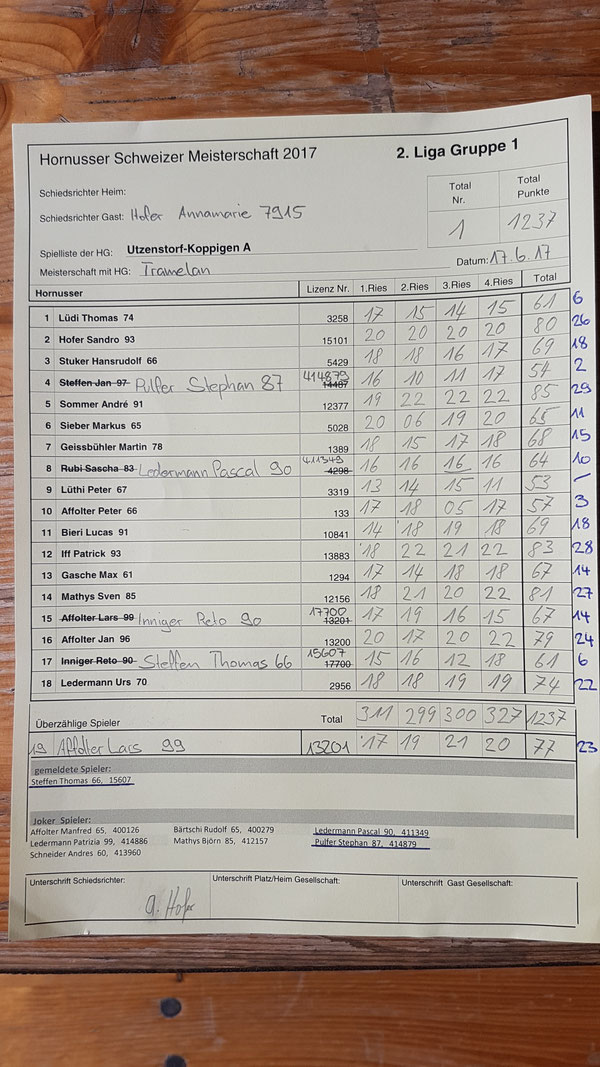 Hornusser Schweizer Meisterschaft 2017 2. Liga Gruppe 1
Schiedsrichter Heim: Total Nr. Total Punkte
Schiedsrichter Gast: Hofer Annamarie 7915 1 1237
Spielliste der HG: Utzenstorf-Koppigen A
Meisterschaft mit HG: Tramelan Datum: 17.6.17
Hornusser Lizenz Nr. 1.Ries 2.Ries 3.Ries 4.Ries Total
1 Lüdi Thomas 74 3258 17 15 14 15 61 6
2 Hofer Sandro 93 15101 20 20 20 20 80 26
3 Stuker Hansrudolf 66 5429 18 18 16 17 69 18
4 Steffen Jan 97 Pulfer Stephan 87 414879 14487 16 10 11 17 54 2
5 Sommer André 91 12377 19 22 22 22 85 29
6 Sieber Markus 65 5028 20 06 19 20 65 11
7 Geissbühler Martin 78 1389 18 15 17 18 68 15
8 Rubi Sascha 83 Ledermann Pascal 90 411349 4298 16 16 16 16 64 10
9 Lüthi Peter 67 3319 13 14 15 11 53 –
10 Affolter Peter 66 133 17 18 05 17 57 3
11 Bieri Lucas 91 10841 14 18 19 18 69 18
12 Iff Patrick 93 13883 18 22 21 22 83 28
13 Gasche Max 61 1294 17 14 18 18 67 14
14 Mathys Sven 85 12156 18 21 20 22 81 27
15 Affolter Lars 99 Inniger Reto 90 17700 13201 17 19 16 15 67 14
16 Affolter Jan 96 13200 20 17 20 22 79 24
17 Inniger Reto 90 Steffen Thomas 66 15607 17700 15 16 12 18 61 6
18 Ledermann Urs 70 2956 18 18 19 19 74 22
Überzählige Spieler Total 311 299 300 327 1237
19 Affolter Lars 99 13201 17 19 21 20 77 23
gemeldete Spieler:
Steffen Thomas 66, 15607
Joker Spieler:
Affolter Manfred 65, 400126 Bärtschi Rudolf 65, 400279 Ledermann Pascal 90, 411349
Ledermann Patrizia 99, 414886 Mathys Björn 85, 412157 Pulfer Stephan 87, 414879
Schneider Andres 60, 413960
Unterschrift Schiedsrichter: Unterschrift Platz/Heim Gesellschaft: Unterschrift Gast Gesellschaft:
a. Hofer